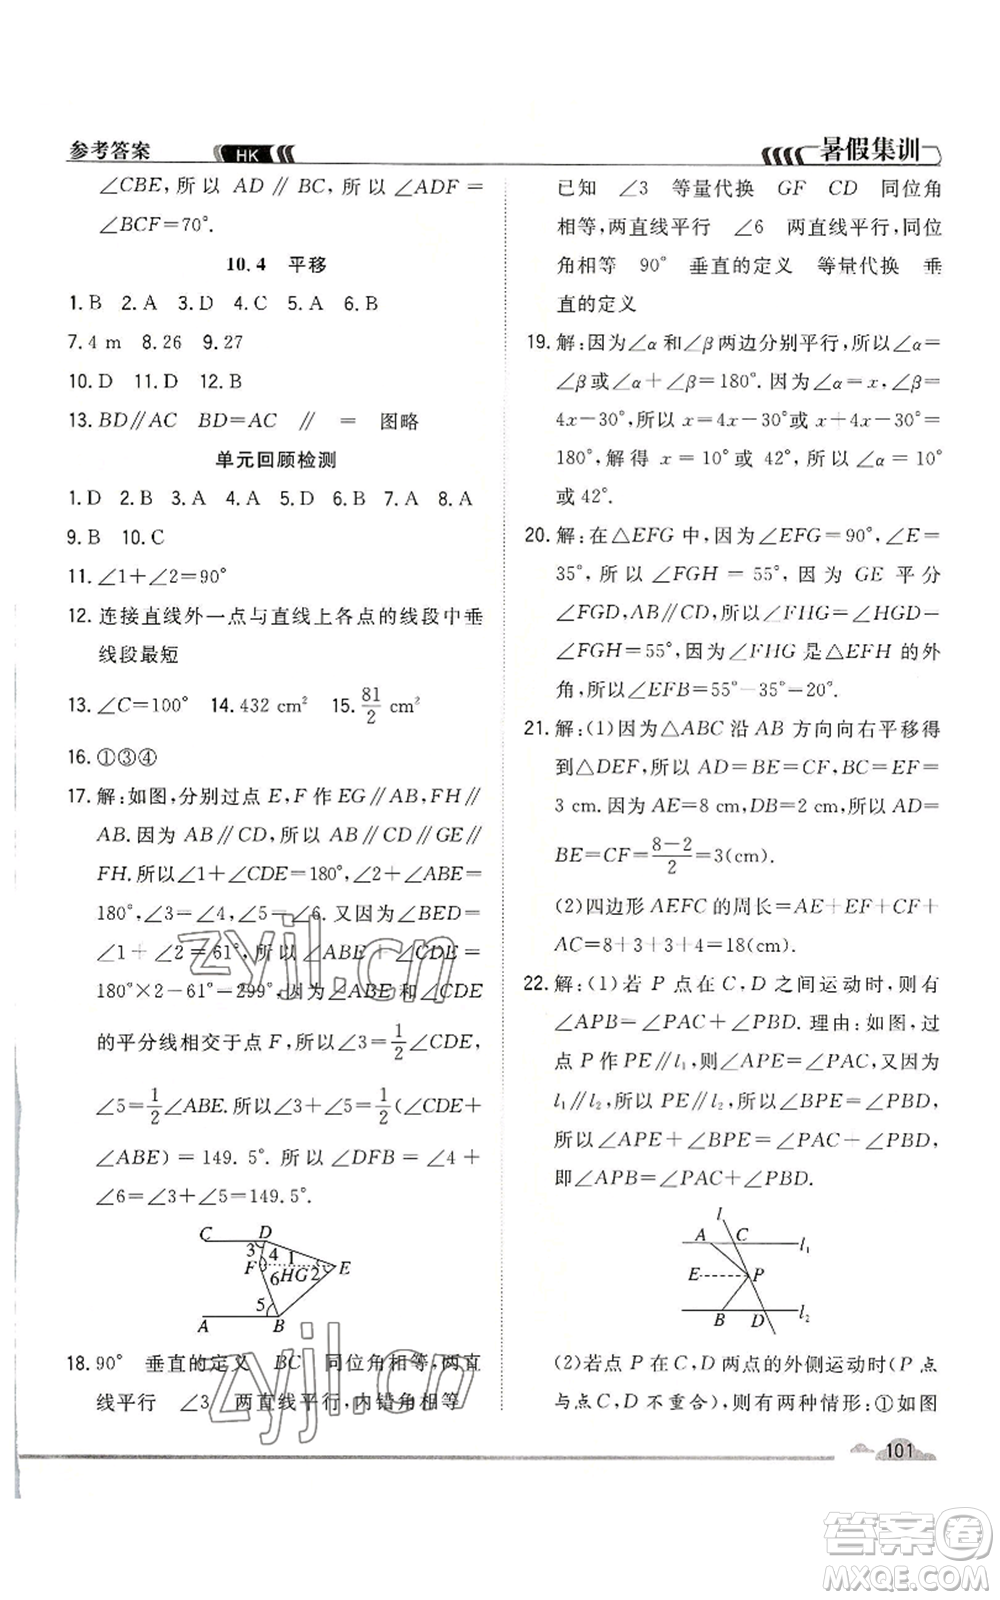 参考答案
HK
暑假集训
∠CBE,所以 AD∥BC,所以∠ADF=
∠BCF=70°.
10.4 平移
1.B 2.A 3.D 4.C 5.A 6.B
7.4 m 8.26 9.27
10.D 11.D 12.B
13.BD∥AC BD=AC ∥ = 图略
单元回顾检测
1.D 2.B 3.A 4.A 5.D 6.B 7.A 8.A
9.B 10.C
11.∠1+∠2=90°
12.连接直线外一点与直线上各点的线段中垂
线段最短
13.∠C=100° 14.432 cm² 15.81/2 cm²
16.①③④
17.解:如图,分别过点 E,F 作 EG∥AB,FH∥
AB.因为 AB∥CD,所以 AB∥CD∥GE∥
FH.所以∠1+∠CDE=180°,∠2+∠ABE=
180°,∠3=∠4,∠5=∠6.又因为∠BED=
∠1+∠2=61°,所以∠ABE+∠CDE=
180°×2-61°=299°,因为∠ABE 和∠CDE
的平分线相交于点 F,所以∠3=1/2∠CDE,
∠5=1/2∠ABE.所以∠3+∠5=1/2(∠CDE+
∠ABE)=149.5°.所以∠DFB=∠4+
∠6=∠3+∠5=149.5°.
C D
3 4 1
F 6 H G 2 E
5
A B
18.90° 垂直的定义 BC 同位角相等,两直
线平行 ∠3 两直线平行,内错角相等
已知 ∠3 等量代换 GF CD 同位角
相等,两直线平行 ∠6 两直线平行,同位
角相等 90° 垂直的定义 等量代换 垂
直的定义
19.解:因为∠α和∠β两边分别平行,所以∠α=
∠β或∠α+∠β=180°.因为∠α=x,∠β=
4x-30°,所以 x=4x-30°或 x+4x-30°=
180°,解得 x=10°或 42°,所以∠α=10°
或 42°.
20.解:在△EFG 中,因为∠EFG=90°,∠E=
35°,所以∠FGH=55°,因为 GE 平分
∠FGD,AB∥CD,所以∠FHG=∠HGD=
∠FGH=55°,因为∠FHG 是△EFH 的外
角,所以∠EFB=55°-35°=20°.
21.解:(1)因为△ABC 沿 AB 方向向右平移得
到△DEF,所以 AD=BE=CF,BC=EF=
3 cm.因为 AE=8 cm,DB=2 cm,所以 AD=
BE=CF=(8-2)/2=3(cm).
(2)四边形 AEFC 的周长=AE+EF+CF+
AC=8+3+3+4=18(cm).
22.解:(1)若 P 点在 C,D 之间运动时,则有
∠APB=∠PAC+∠PBD.理由:如图,过
点 P 作 PE∥l₁,则∠APE=∠PAC,又因为
l₁∥l₂,所以 PE∥l₂,所以∠BPE=∠PBD,
所以∠APE+∠BPE=∠PAC+∠PBD,
即∠APB=∠PAC+∠PBD.
l
A C l₁
E P
B D l₂
(2)若点 P 在 C,D 两点的外侧运动时(P 点
与点 C,D 不重合),则有两种情形:①如图
101
zyjl.cn
zyjl.cn
答案卷
MXQE.COM